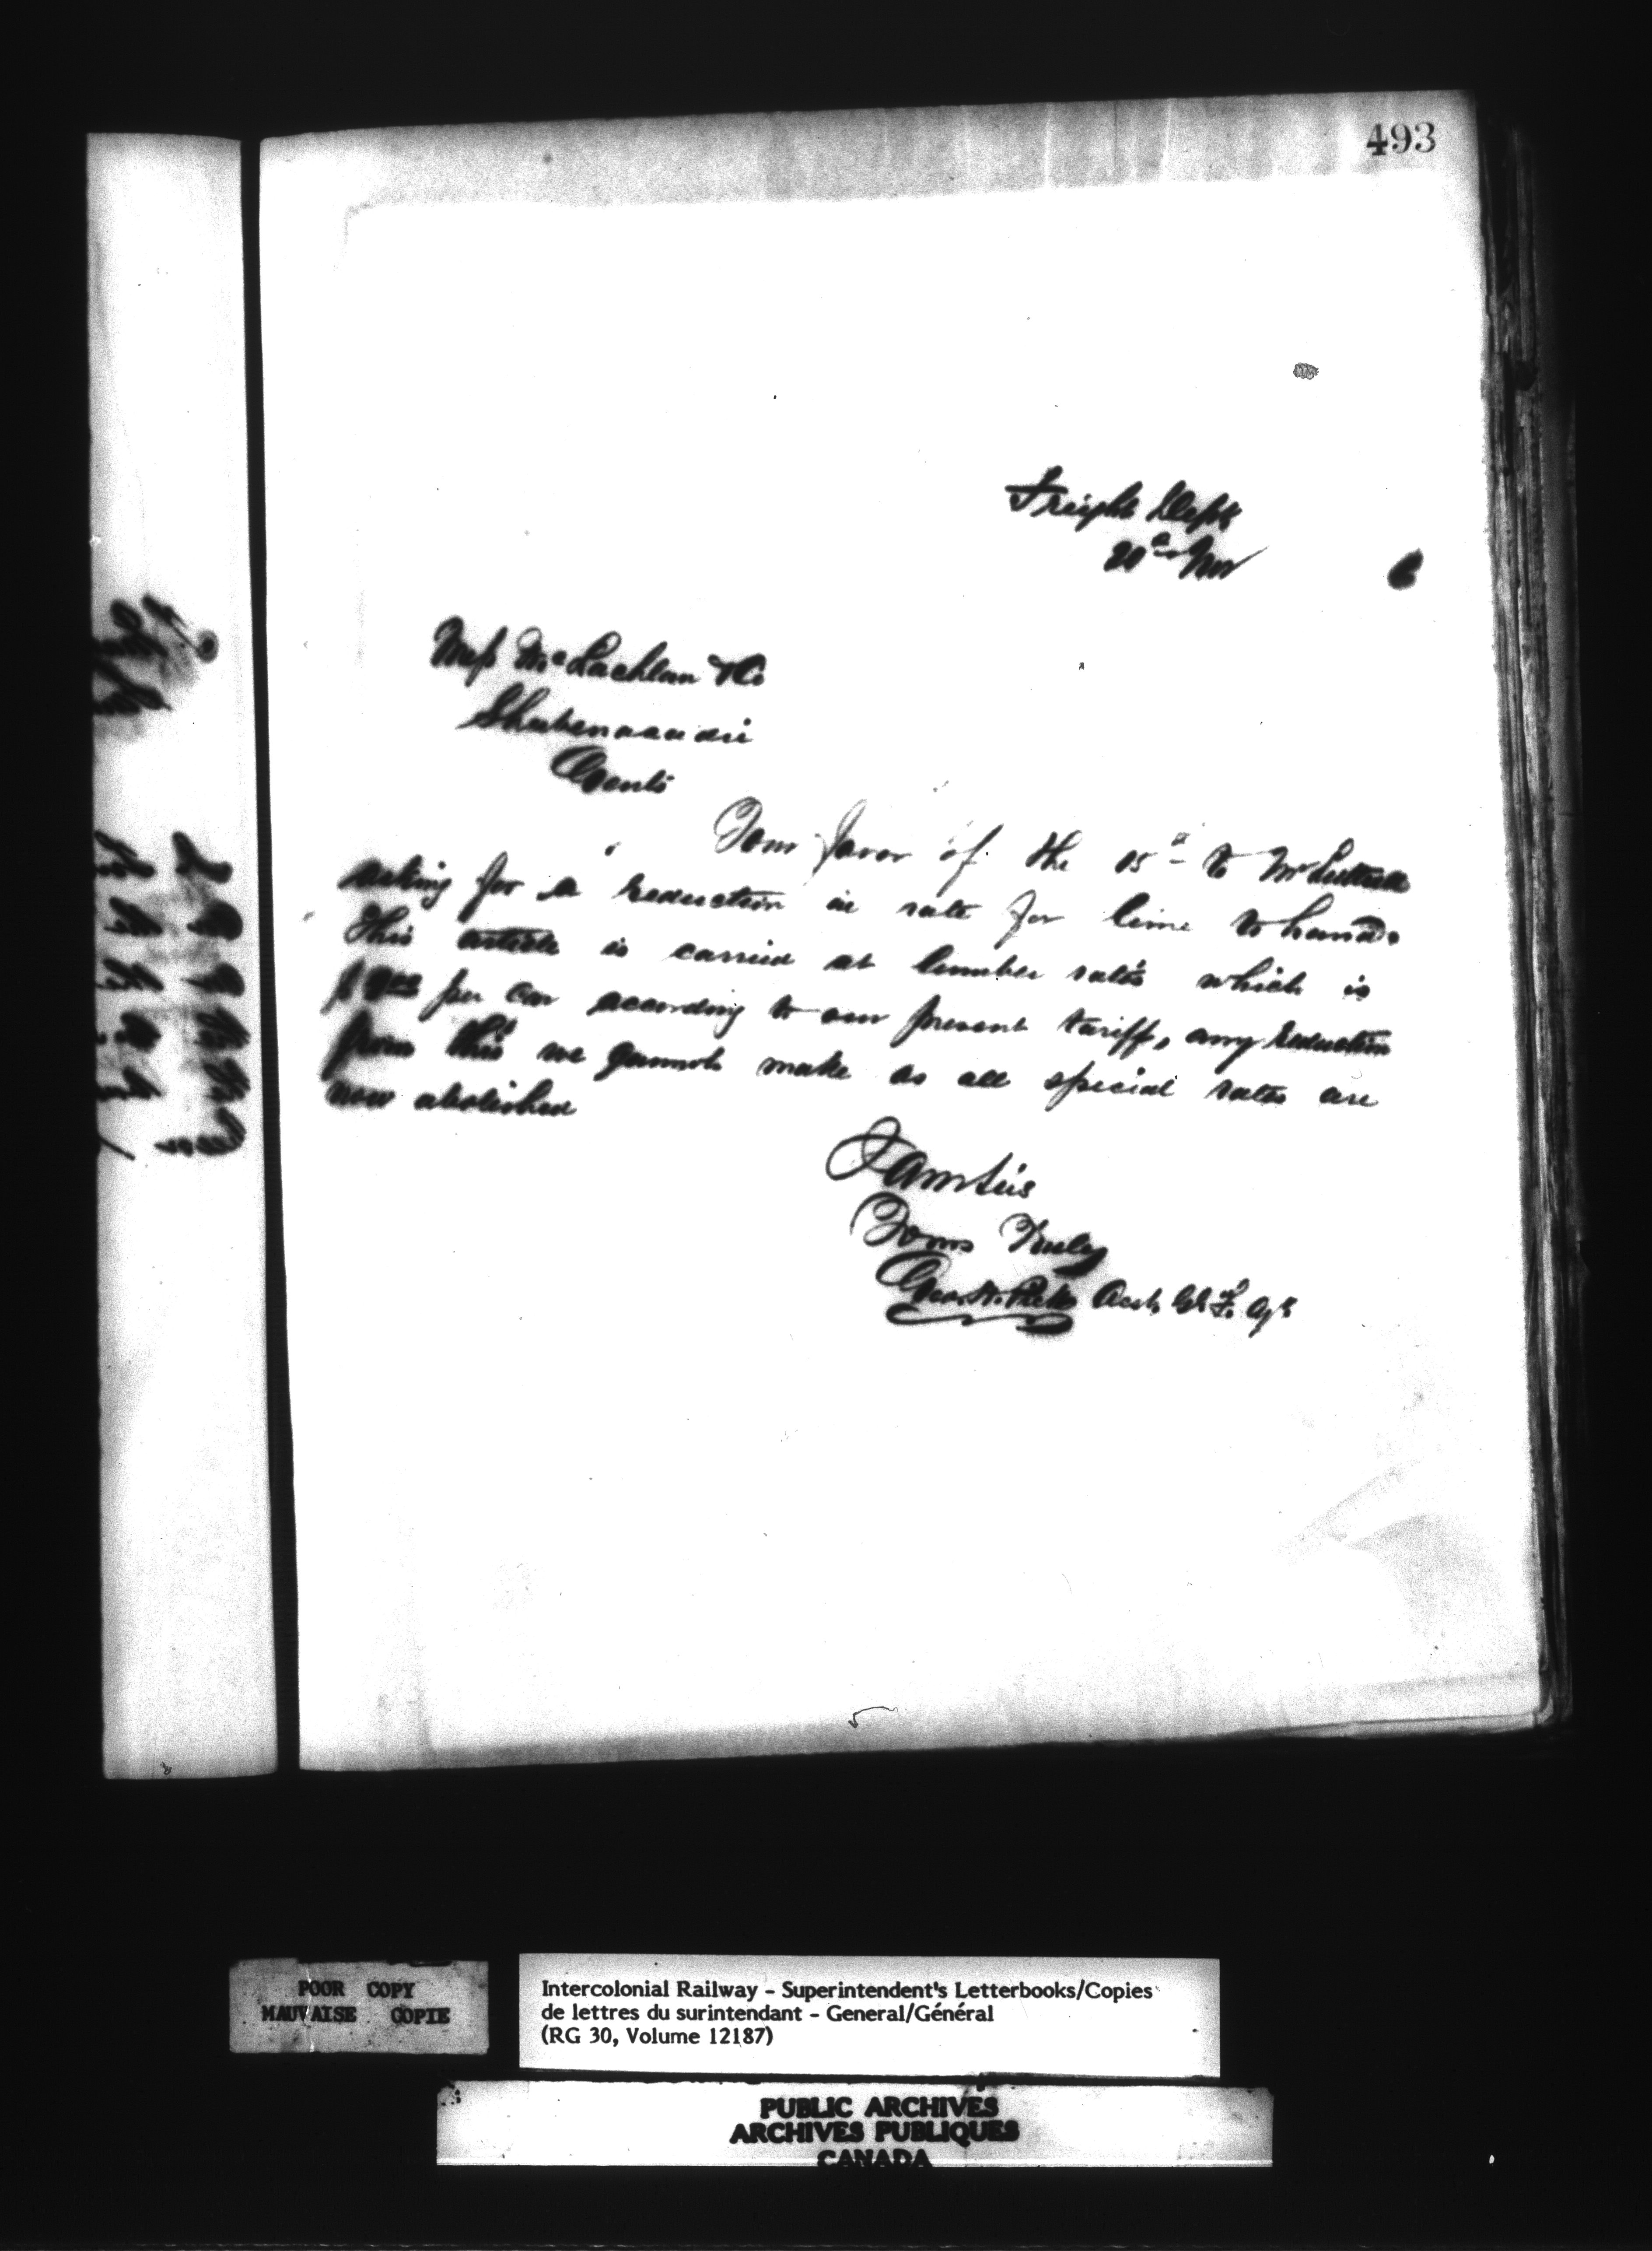 493
Freight Dept
20th Nov 6
Mess McLachlan & Co
Shubenacadie
Gents
Your favor of the 15th to Mr Luttrell
asking for a reduction in rate for lime to hand.
This article is carried at lumber rates which is
per car according to our present tariff, any reduction
from this we cannot make as all special rates are
now abolished
I am Sirs
Yours Truly
Geo. Asst Gl. F. Agt
POOR COPY
MAUVAISE COPIE
Intercolonial Railway - Superintendent's Letterbooks/Copies
de lettres du surintendant - General/Général
(RG 30, Volume 12187)
PUBLIC ARCHIVES
ARCHIVES PUBLIQUES
CANADA